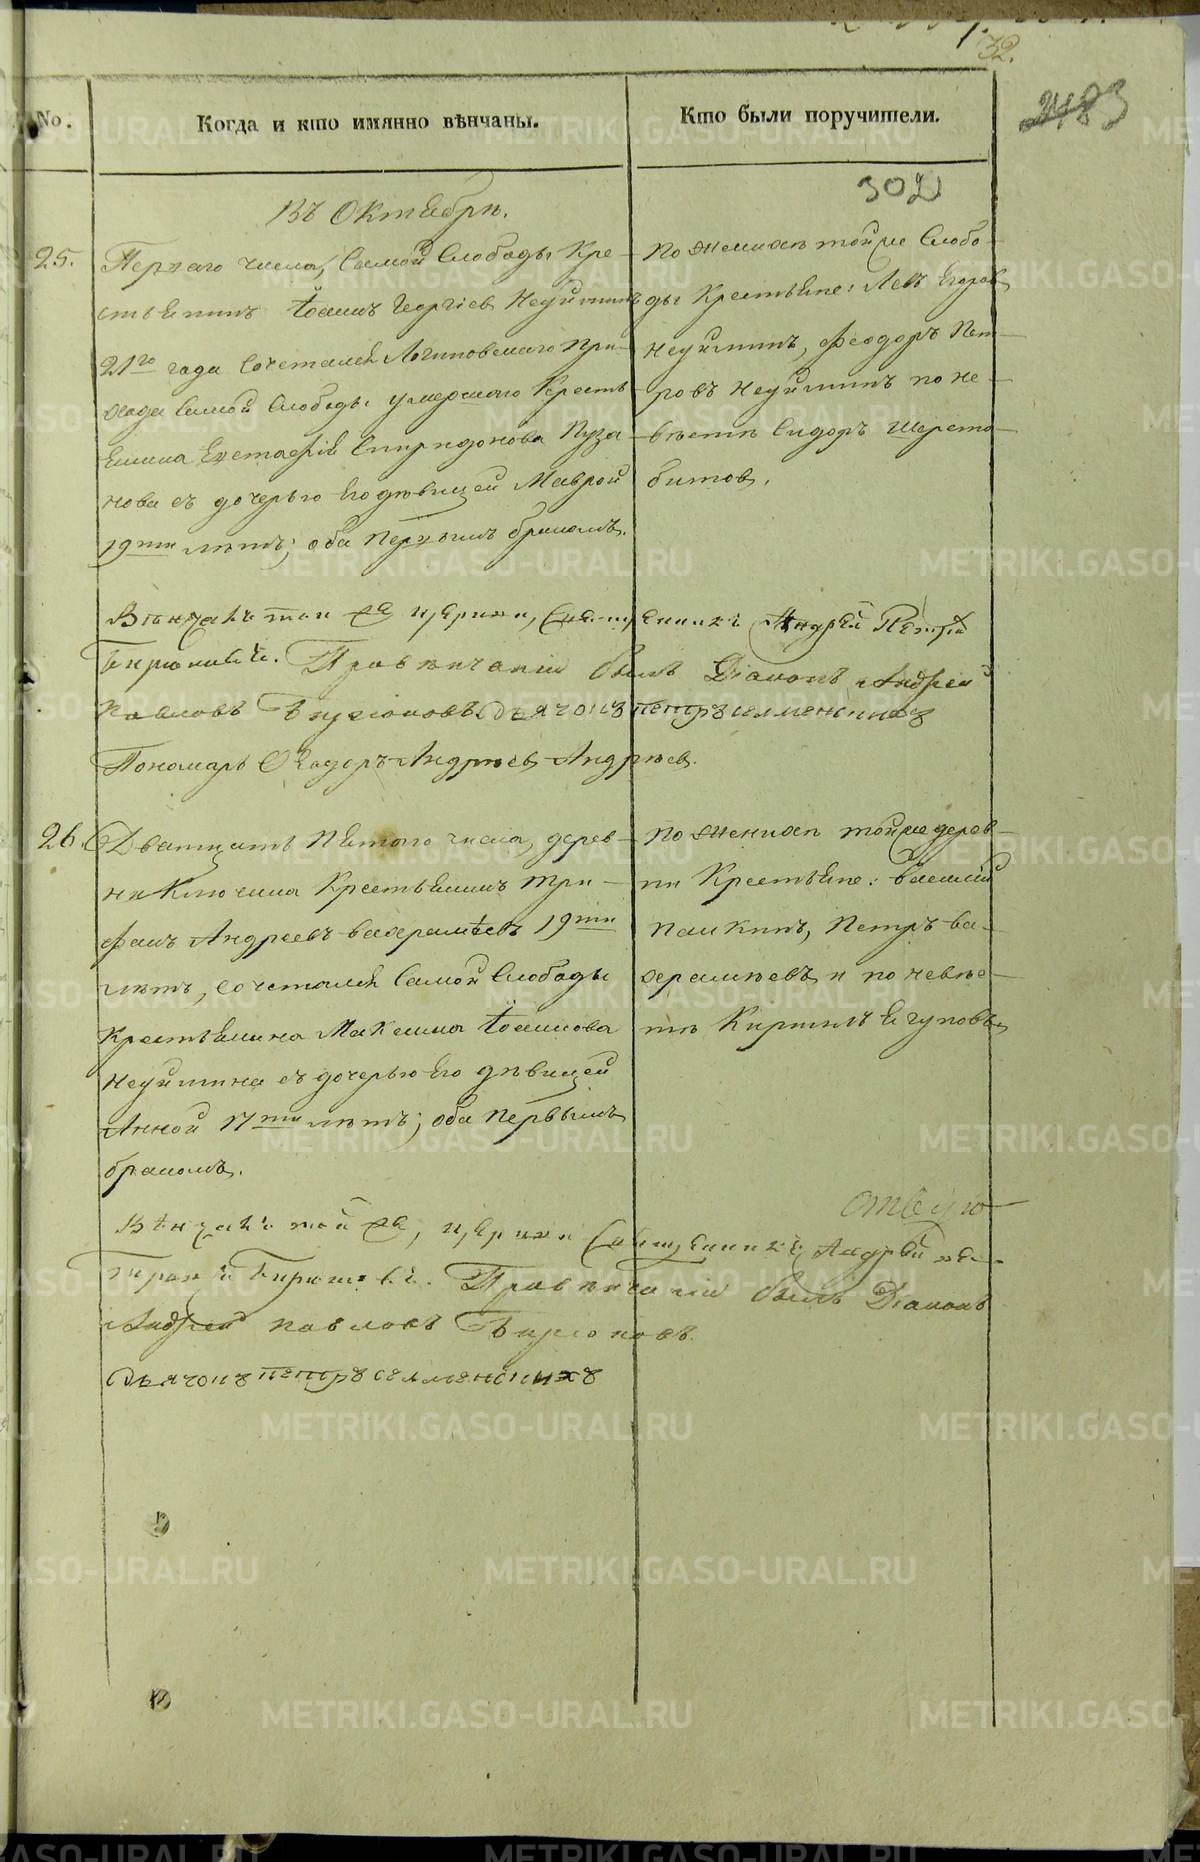 32.
2483
No.
Когда и кто имянно вѣнчаны.
Кто были поручители.
302
Въ Октябрѣ.
25.
Перваго числа, Самой Слободы Кре-
стьянинъ Іоаннъ Георгіевъ Неуйминъ
21го года сочетался Логиновскаго При-
хода Самой Слободы умершаго Кресть-
янина Евстафія Спиридонова Пуза-
нова съ дочерью его дѣвицей Маврой
19ти лѣтъ; оба первымъ бракомъ.
По женихѣ той же Слобо-
ды Крестьяне: Левъ Егоровъ
Неуйминъ, Феодоръ Пет-
ровъ Неуйминъ по не-
вѣстѣ Сидоръ Шерсто-
битовъ.
Вѣнчалъ той же церкви, Священникъ Андрей Петровъ
Бирюковъ. При вѣнчаніи былъ Діаконъ Андрей
Павловъ Бирюковъ. Дьячокъ Петръ Селменскихъ
Пономарь Феодоръ Андреевъ Андреевъ.
26.
Дватцать пятаго числа, дерев-
ни Ключина Крестьянинъ Три-
фанъ Андреевъ Вахрамѣевъ 19ти
лѣтъ, сочетался Самой Слободы
Крестьянина Максима Іоаннова
Неуймина съ дочерью его дѣвицей
Анной 17ти лѣтъ; оба первымъ
бракомъ.
По женихѣ той же дерев-
ни Крестьяне: Василій
Панкинъ, Петръ Ва-
храмѣевъ и по невѣс-
тѣ Кирилъ Ягуповъ
Вѣнчалъ той же, церкви Священникъ Андрей
Бирюковъ. При вѣнчаніи былъ Діаконъ
Андрей Павловъ Бирюковъ.
Дьячокъ Петръ Селменскихъ
METRIKI.GASO-URAL.RU